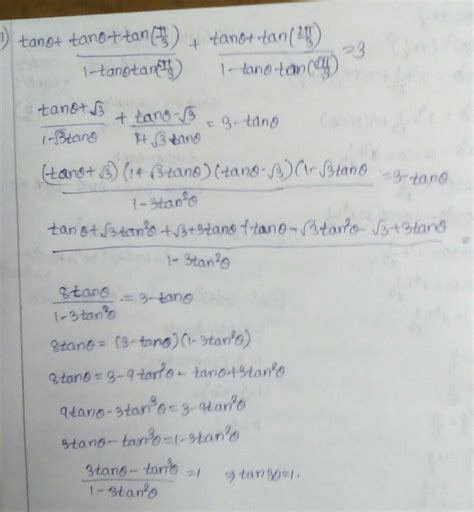 1) tanθ + (tanθ + tan(π/3))/(1-tanθtan(π/3)) + (tanθ + tan(2π/3))/(1-tanθ·tan(2π/3)) = 3
(tanθ+√3)/(1-√3tanθ) + (tanθ-√3)/(1+√3tanθ) = 3-tanθ
((tanθ+√3)(1+√3tanθ)(tanθ-√3)(1-√3tanθ)/(1-3tan²θ) = 3-tanθ
(tanθ+√3tan²θ+√3+3tanθ+tanθ-√3tan²θ-√3+3tanθ)/(1-3tan²θ) =
8tanθ/(1-3tan²θ) = 3-tanθ
8tanθ = (3-tanθ)(1-3tan²θ)
8tanθ = 3-9tan²θ - tanθ+3tan³θ
9tanθ-3tan³θ = 3-9tan²θ
3tanθ-tan³θ = 1-3tan²θ
(3tanθ-tan³θ)/(1-3tan²θ) = 1 ⇒ tan3θ=1.